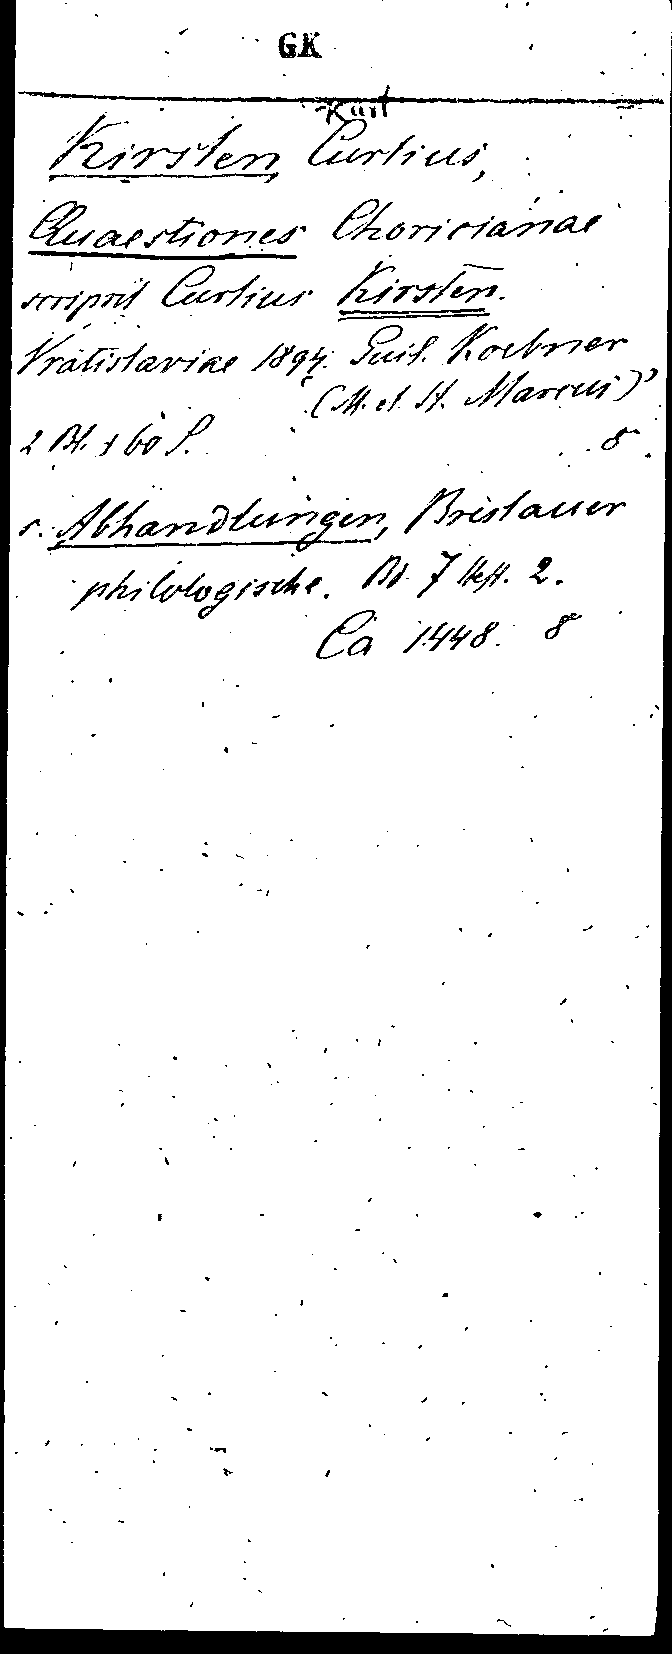 GK
Kurt
Kirsten, Curtius,
Quaestiones Choricianae
scripsit Curtius Kirsten.
Vratislaviae 1894. Guil. Koebner
(M. et H. Marcus)
2 Bl. + 60 S. 8.
s. Abhandlungen, Breslauer
philologische. Bd. 7 Heft. 2.
Ca 1448. 8